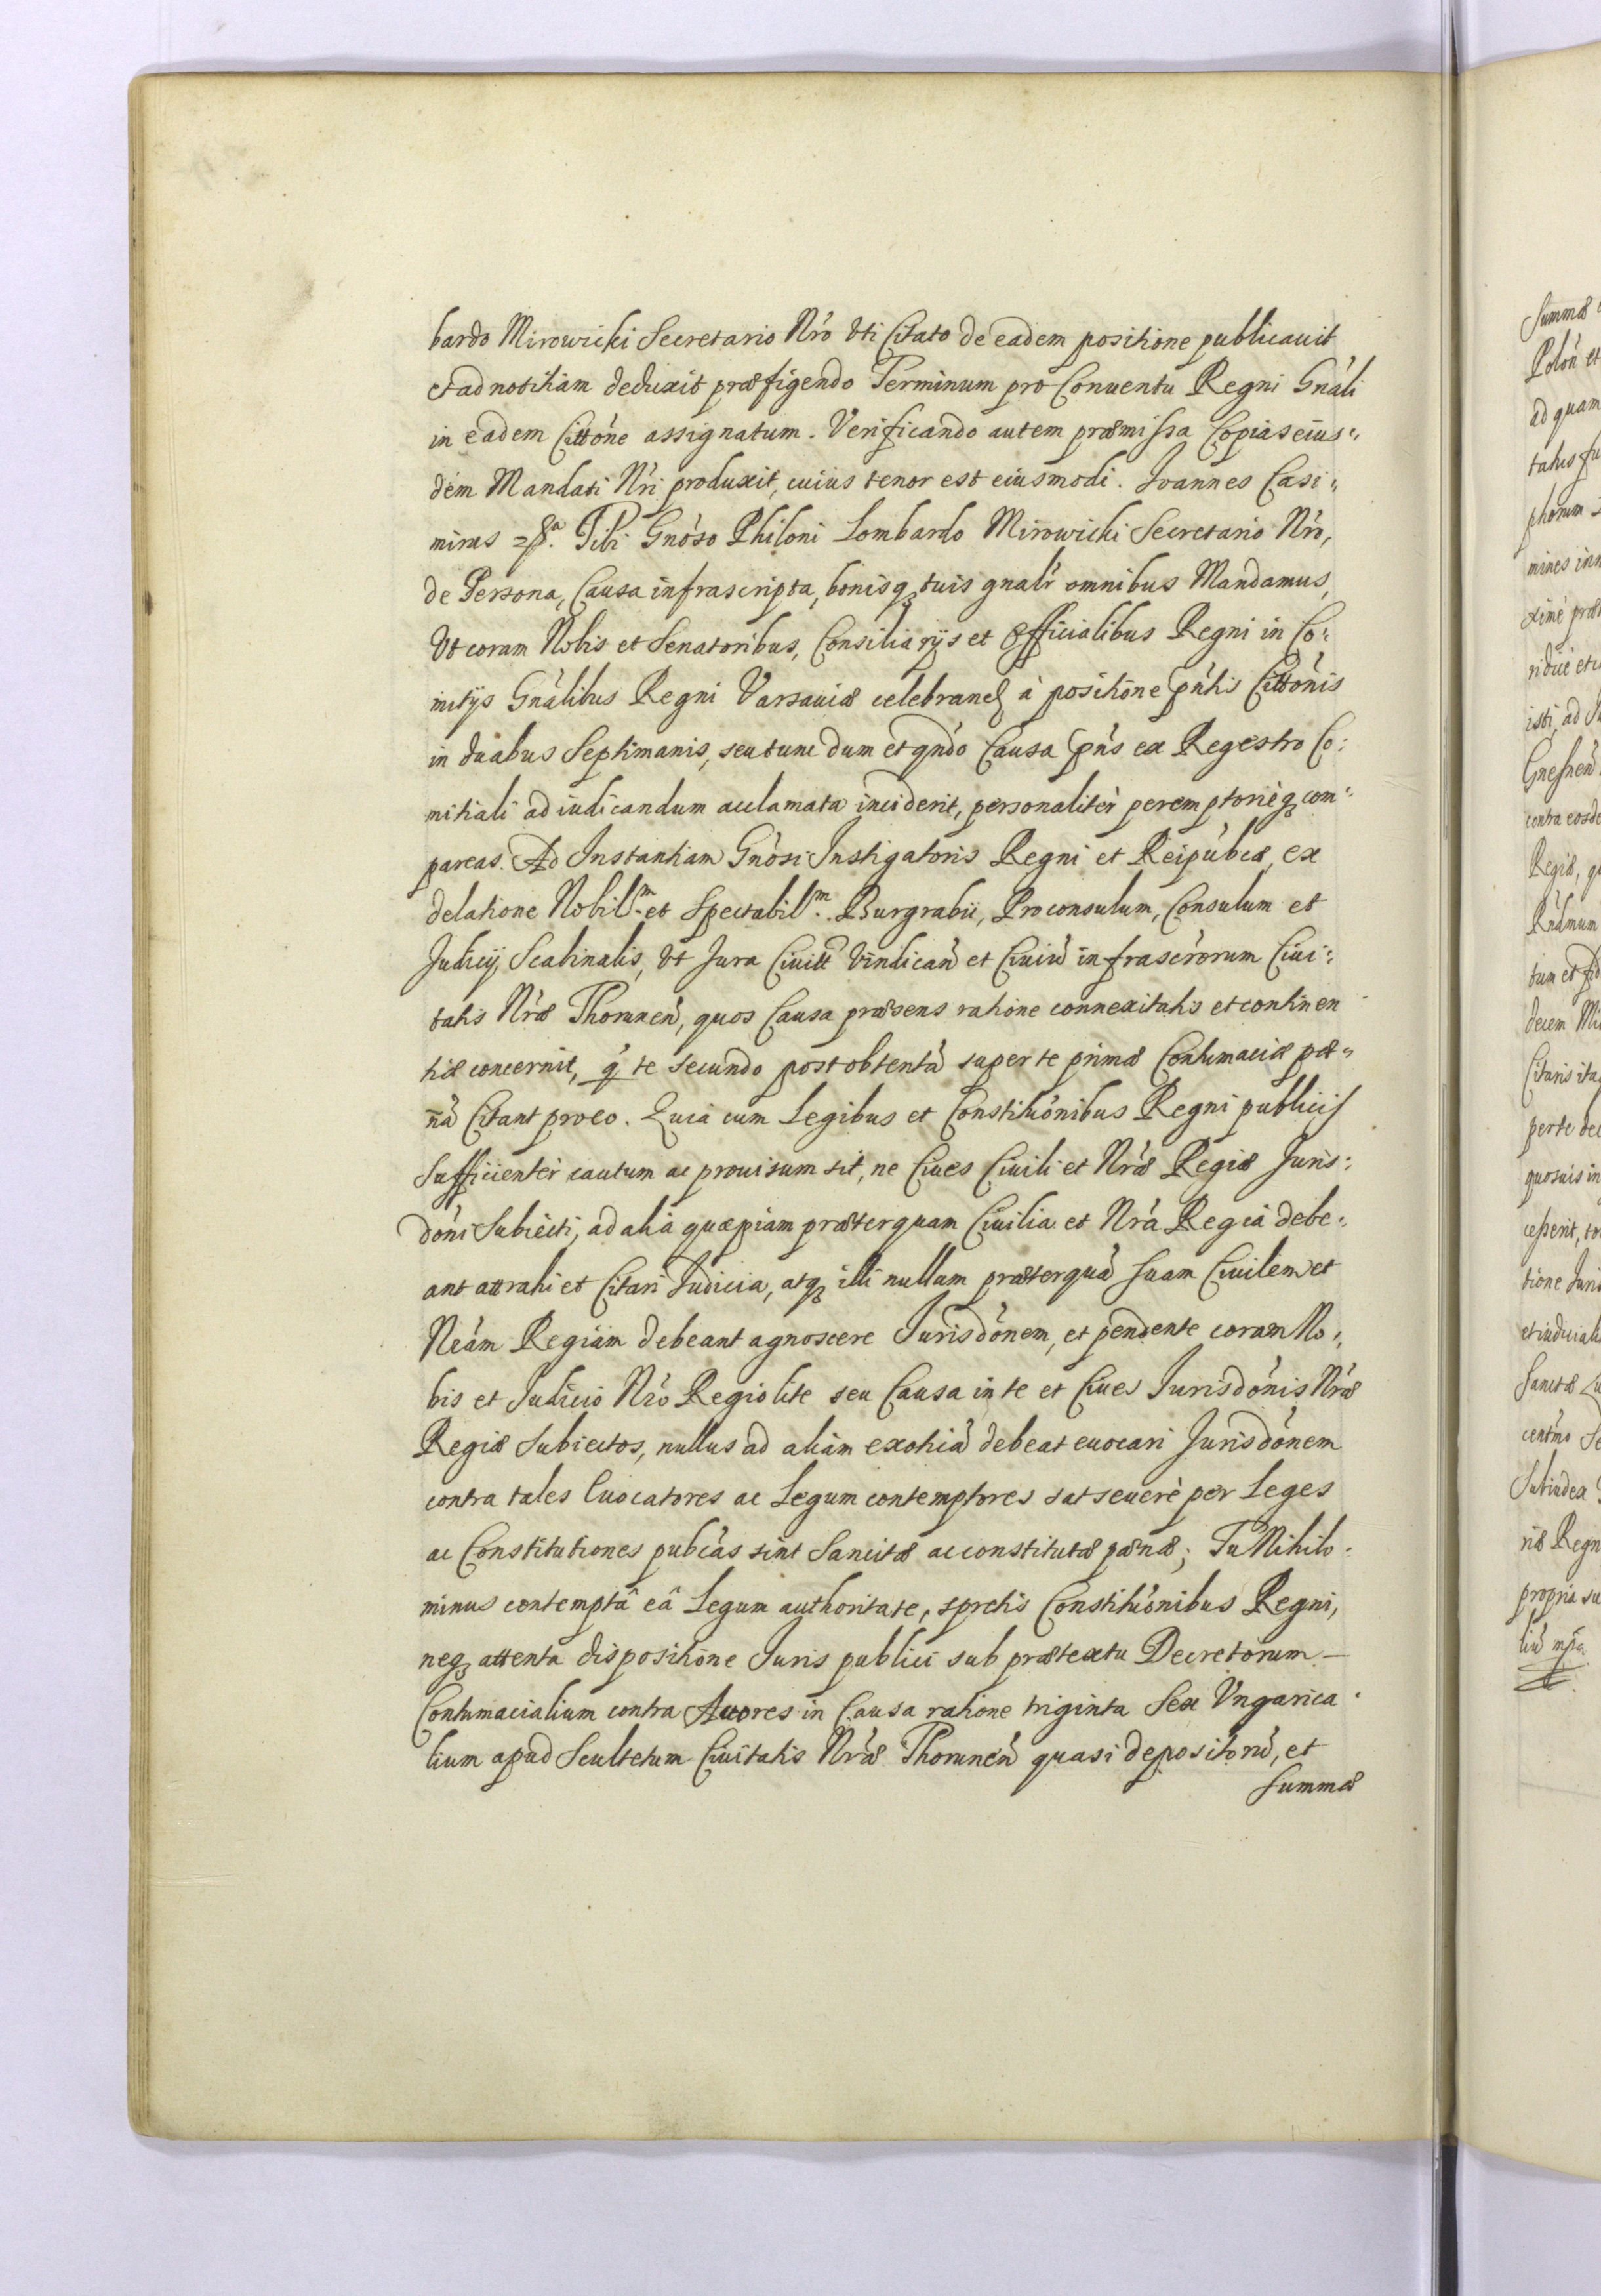 bardo Mirowicki Secretario Nr̃o Vti Citato de eadem positione publicauit
et ad notitiam deduxit præfigendo Terminum pro Conuentu Regni Gnãli
in eadem Cittõne assignatum. Verificando autem præmissa Copias eius⸗
dem Mandati Nr̃i produxit, cuius tenor est eiusmodi. Ioannes Casi⸗
mirus Tibi Gnõso Philoni Lombardo Mirowicki Secretario Nr̃o,
de Persona, Causa infrascripta, bonisq₃ tuis gnalr̃ omnibus Mandamus,
Vt coram Nobis et Senatoribus, Consiliarÿs et Officialibus Regni in Co⸗
mitÿs Gnãlibus Regni Varsauiæ celebrand̃ à positione pñtis Cittõnis
in duabus Septimanis, seu tunc dum et qñdo Causa pñs ex Regestro Co⸗
mitiali ad iudicandum acclamata inciderit, personalitèr peremptoriéq₃ com⸗
pareas. Ad Instantiam Gnõsi Instigatoris Regni et Reipub̃cæ, ex
delatione Nobil.ᵐ et Spectabil.ᵐ Burgrabii, Proconsulum, Consulum et
Judicÿ Scabinalis, Vt Jura Ciuitt̃ Vindican̄ et Ciuiū infrascr̃orum Ciui⸗
tatis Nr̃æ Thorunen̄, quos Causa præsens ratione connexitatis et continen
tiæ concernit, q̃ te secundo post obtentā super te primæ Contumaciæ pœ⸗
nā Citant pro eo. Quia cum Legibus et Constituõnibus Regni publicis
Sufficientèr cautum ac prouisum sit, ne Ciues Ciuili et Nr̃æ Regiæ Juris⸗
dõni Subiecti, ad alia quæpiam præterquam Ciuilia et Nr̃a Regia debe⸗
ant attrahi et Citari Judicia, atq₃ illi nullam præterquā suam Ciuilem et
Nr̃am Regiam debeant agnoscere Jurisdõnem, et pendente coram No⸗
bis et Judicio Nr̃o Regio lite seu Causa in te et Ciues Jurisdõnis Nr̃æ
Regiæ Subiectos, nullus ad aliam exotiā debeat euocari Jurisdõnem
contra tales Euocatores ac Legum contemptores sat seuerè per Leges
ac Constitutiones pub̃cas sint Sancitæ ac constitutæ pœnæ; Tu Nihilo⸗
minus contemptâ eâ Legum authoritate, spretis Constituõnibus Regni,
neq₃ attenta dispositione Juris publici sub prætextu Decretorum —
Contumacialium contra Actores in Causa ratione triginta Sex Vngarica⸗
lium apud Scultetum Ciuitatis Nr̃æ Thorunen̄ quasi depositorū, et
Summæ
Summæ
Polon̄ et
ad quam
talis
phorum
mines
xime
ridue
isti, ad
Gnesnen̄
contra eosd
Regiæ, q
Rñdmum
tum et
decem
Citaris ita
per te dec
quosuis in
cesserit, to
tione Juris
et iudiciali
Sanctæ
centmo
Subiudex
riæ Regn
propria
liū mp̃a